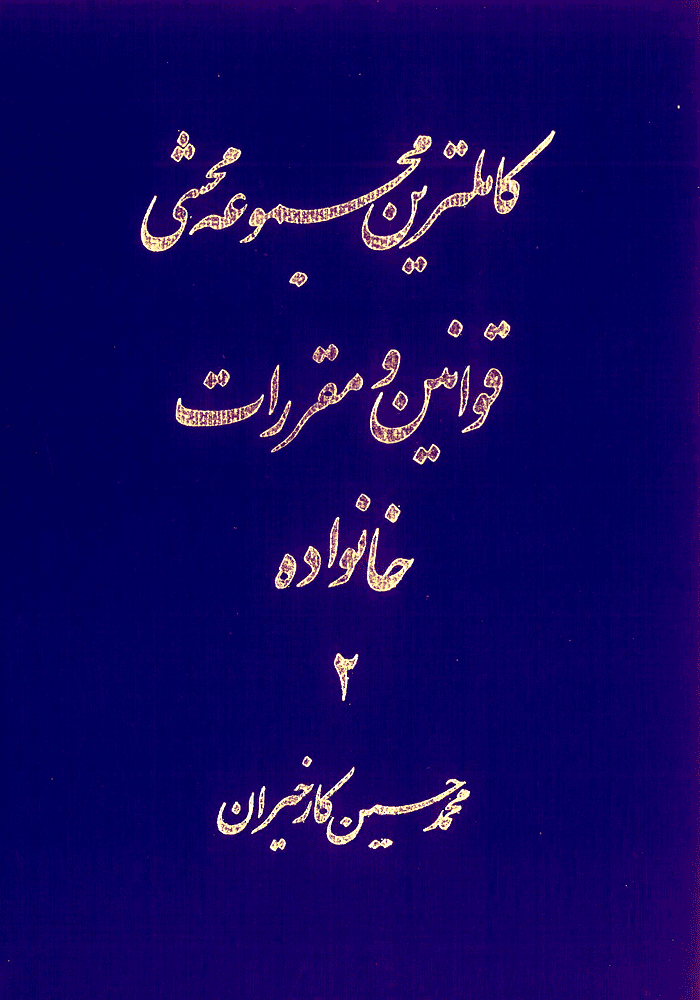 کاملترین مجموعه محشی
قوانین و مقررات
خانواده
۲
محمد حسین کارخیران